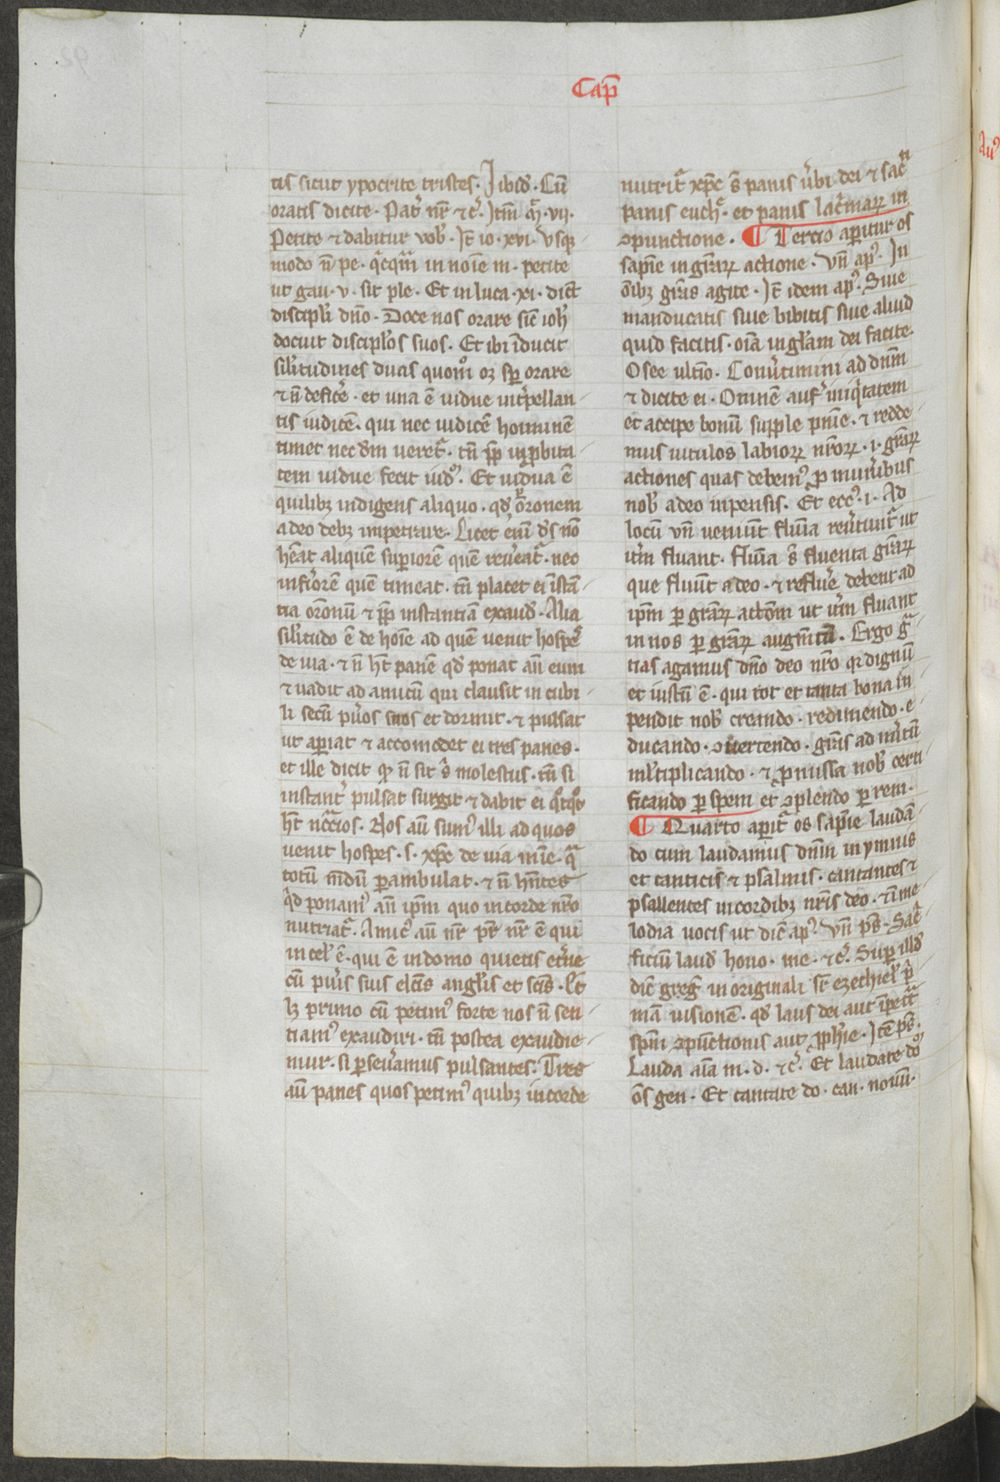 Cap̄
tis sicut ypocrite tristes. Ibid᷒. Cū
oratis dicite. Pat᷒ nr̄ ⁊ c᷒. Itm̄ mͣ. vii.
Petite ⁊ dabitur vob᷒. It̄ io. xvi. Vsqꝫ
modo n̄ pe. qͥcqͣm in noīe m. petite
ut gau. v. sit ple. Et in luca. xi. dicūt
discipl᷒i dn̄o. Doce nos orare sic̄ ioh᷒
docuit discipl᷒os suos. Et ibi īducit
sil᷒itudines duas quoͦm oꝫ sꝑ orare
⁊ n̄ defice᷒. et una ē vidue int᷒pellan
tis iudicē. qui nec iudicē hominē
timet nec dm̄ ueret᷒. tn̄ ꝓp̄ inꝓbita
tem vidue fecit iud᷒. Et vidua ē
quilibꝫ indigens aliquo. qd᷒ ꝑ or̄onem
a deo debꝫ impetrare. Licet eni᷒ ds̄ nō
hēat aliquē suꝑiorē quē reu᷒eat᷒. nec
inf᷒iorē quē timeat. tn̄ placet ei īstā
tia or̄onū ⁊ ꝓp̄ instantiā exaud᷒. Alia
sil᷒itudo ē de hoīe ad quē venit hospes᷒
de via. ⁊ n̄ ht̄ panē qd᷒ ponat an̄ eum
⁊ vadit ad amicū qui clausit in cubi
li secū pu᷒os suos et dormit. ⁊ pulsat
ut aꝑiat ⁊ accomodet ei tres panes.
et ille dicit qꝫ n̄ sit s᷒ molestus. tn̄ si
instant᷒ pulsat surgit ⁊ dabit ei qͦtqͦt
ht̄ nc̄cios. Nos aū sum᷒ illi ad quos
venit hospes. s. xp̄c de via mīe. qͣ
totū mūdū ꝑambulat. ⁊ n̄ hn̄tes
qͥd ponam᷒ an̄ ip̄m quo in corde nr̄o
nutriat᷒. Amic᷒ aū nr̄ pr̄ nr̄ ē qui
in cel᷒ ē. qui ē in domo quietis et᷒ne
cū pu᷒is suis elc̄is angl᷒is et sc̄is. Et
lꝫ primo cū petim᷒ forte nos n̄ sen
tiam᷒ exaudiri. tn̄ postea exaudie
mur. si ꝑseu᷒amus pulsantes. Tres
aū panes quos petim᷒ quibꝫ in corde
nutrit᷒ xp̄c s̄ panis u᷒bi dei ⁊ sacͭⁱ
panis euch᷒. et panis lac᷒maꝝ in
ꝯpunctione. ¶ Tercio aꝑitur os
sapīe in gr̄aꝝ actione. Vn̄ ap᷒. In
oībꝫ gr̄as agite. It̄ idem ap᷒. Siue
manducatis siue bibitis siue aliud
quid facitis. oīa in gl᷒am dei facite.
Osee ultīo. Conu᷒timini ad dn̄m
⁊ dicite ei. Omnē auf᷒ iniqͥtatem
et accipe bonū supple pn̄ie. ⁊ redde
mus uitulos labioꝝ nr̄oꝝ. i. gr̄aꝝ
actiones quas debem᷒ ꝓ mun᷒ibus
nob᷒ a deo inpensis. Et ecc᷒. i. Ad
locū vn̄ veniūt flumīa reu᷒tunt᷒ ut
it᷒m fluant. flumīa s̄ fluenta gr̄aꝝ
que fluūt a deo. ⁊ reflue᷒ debent ad
ip̄m ꝑ gr̄aꝝ act̄om ut it᷒m fluant
in nos ꝑ gr̄aꝝ augm̄tū. Ergo gͣ
tias agamus dn̄o deo nr̄o qͥ dignū
et iustū ē. qui tot et tanta bona in
pendit nob᷒ creando. redimendo. e
ducando. ꝯuertendo. gr̄as ad m᷒itū
ml᷒tiplicando. ⁊ ꝓmissa nob᷒ certi
ficando ꝑ spem et ꝯplendo ꝑ rem.
¶ Quarto aꝑit᷒ os sapīe laudā
do cum laudamus dn̄m in ymnis
et canticis ⁊ psalmis. cantantes ⁊
psallentes in cordibꝫ nr̄is deo. ⁊ ī me
lodia uocis ut dic̄ ap᷒. Vn̄ ps̄. Sacͥ
ficiū laud᷒ hono. me. ⁊ c᷒. Suꝑ illd᷒
dic̄ greg᷒ in originali sr̄ ezechiel᷒ pͥ
mā visionē. qd᷒ laus dei aut īpetͣt
sp̄m ꝯpūctionis aut ꝓph᷒ie. Itē ps̄.
Lauda aīa m. d. ⁊ c᷒. Et laudate doͫ
ōs gen. Et cantate do. can. nouū.